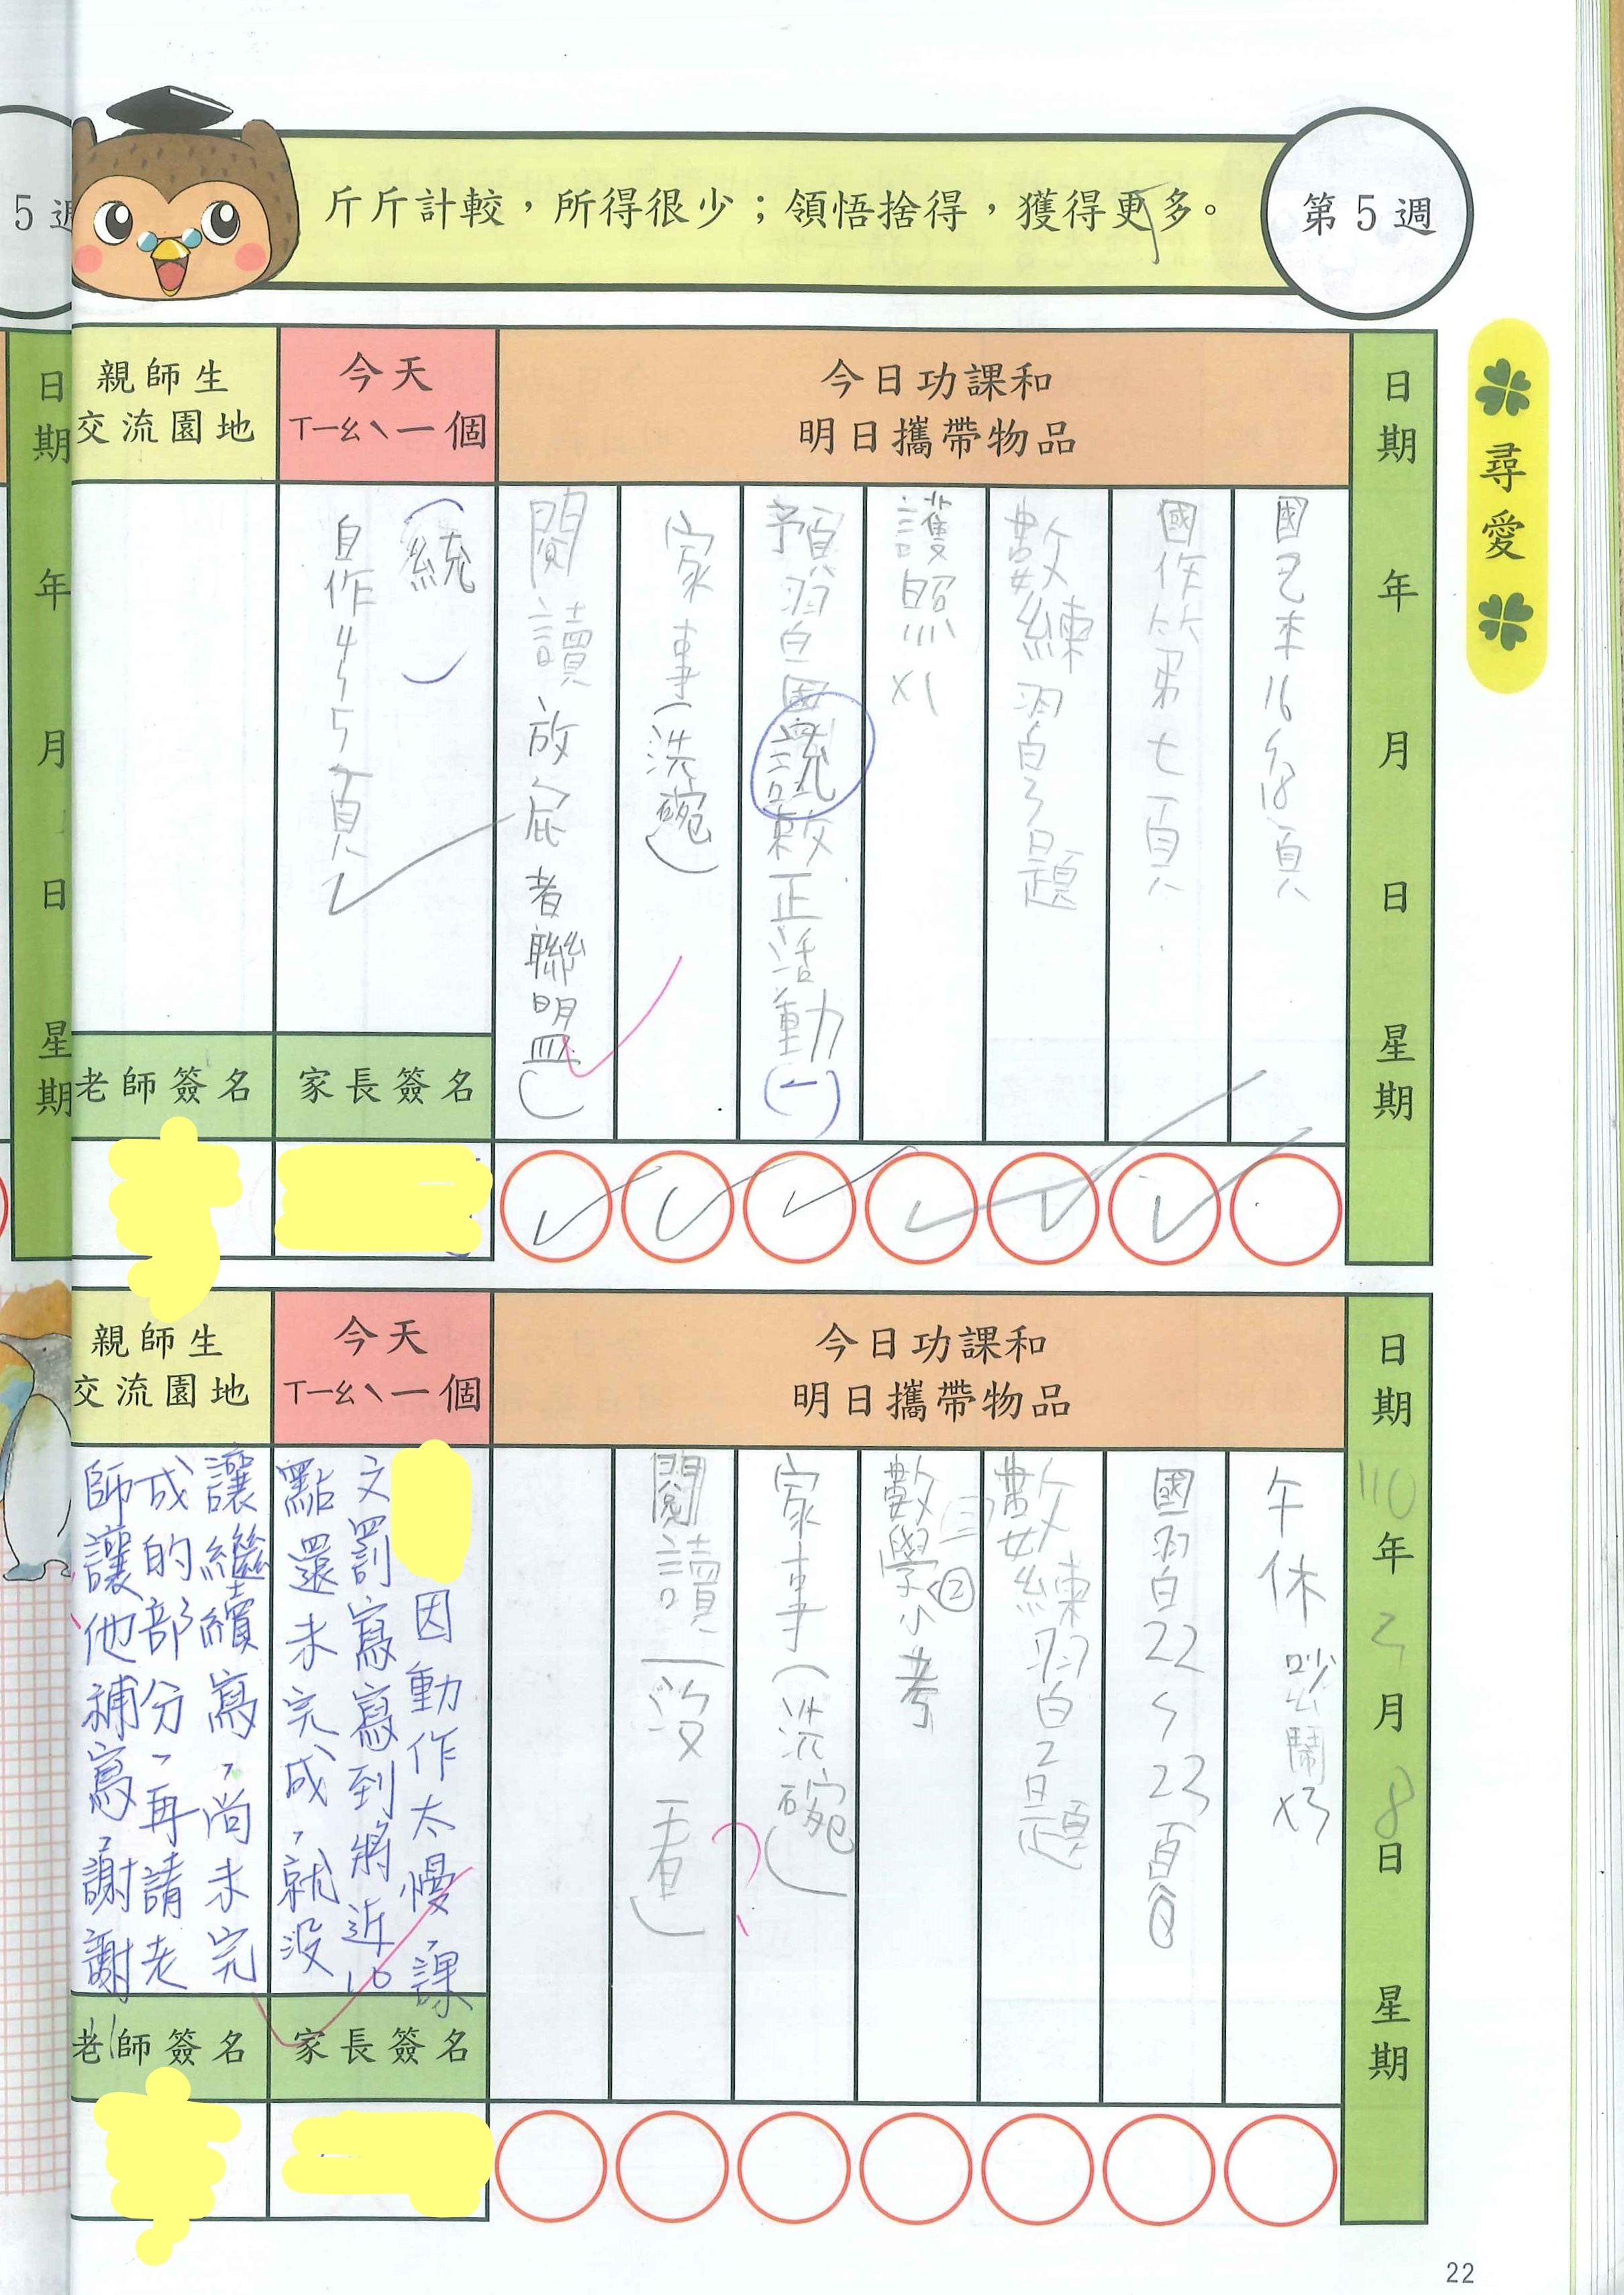 斤斤計較，所得很少；領悟捨得，獲得更多。
第5週
尋愛
日期 年 月 日 星期
今日功課和
明日攜帶物品
國乙本16~18頁
國作 第七頁
數練習白3題
護照x1
預習白國說救正活動(一)
家事(洗碗)
閱讀 放屁者聯盟()
今天
ㄒㄧㄠˋ一個
(統 )
自作4~5頁
家長簽名
親師生
交流園地
老師簽名
日期 110年3月8日 星期
今日功課和
明日攜帶物品
午休吵鬧x3
國習白22~23頁
數練習白2題
數學小考②
家事(洗碗)
閱讀(沒看)
?
今天
ㄒㄧㄠˋ一個
因動作太慢，課
文罰寫寫到將近10
點還未完成，就沒
家長簽名
親師生
交流園地
讓繼續寫，尚未完
成的部分，再請老
師讓他補寫，謝謝
老師簽名
5週
日期 年 月 日 星期
22